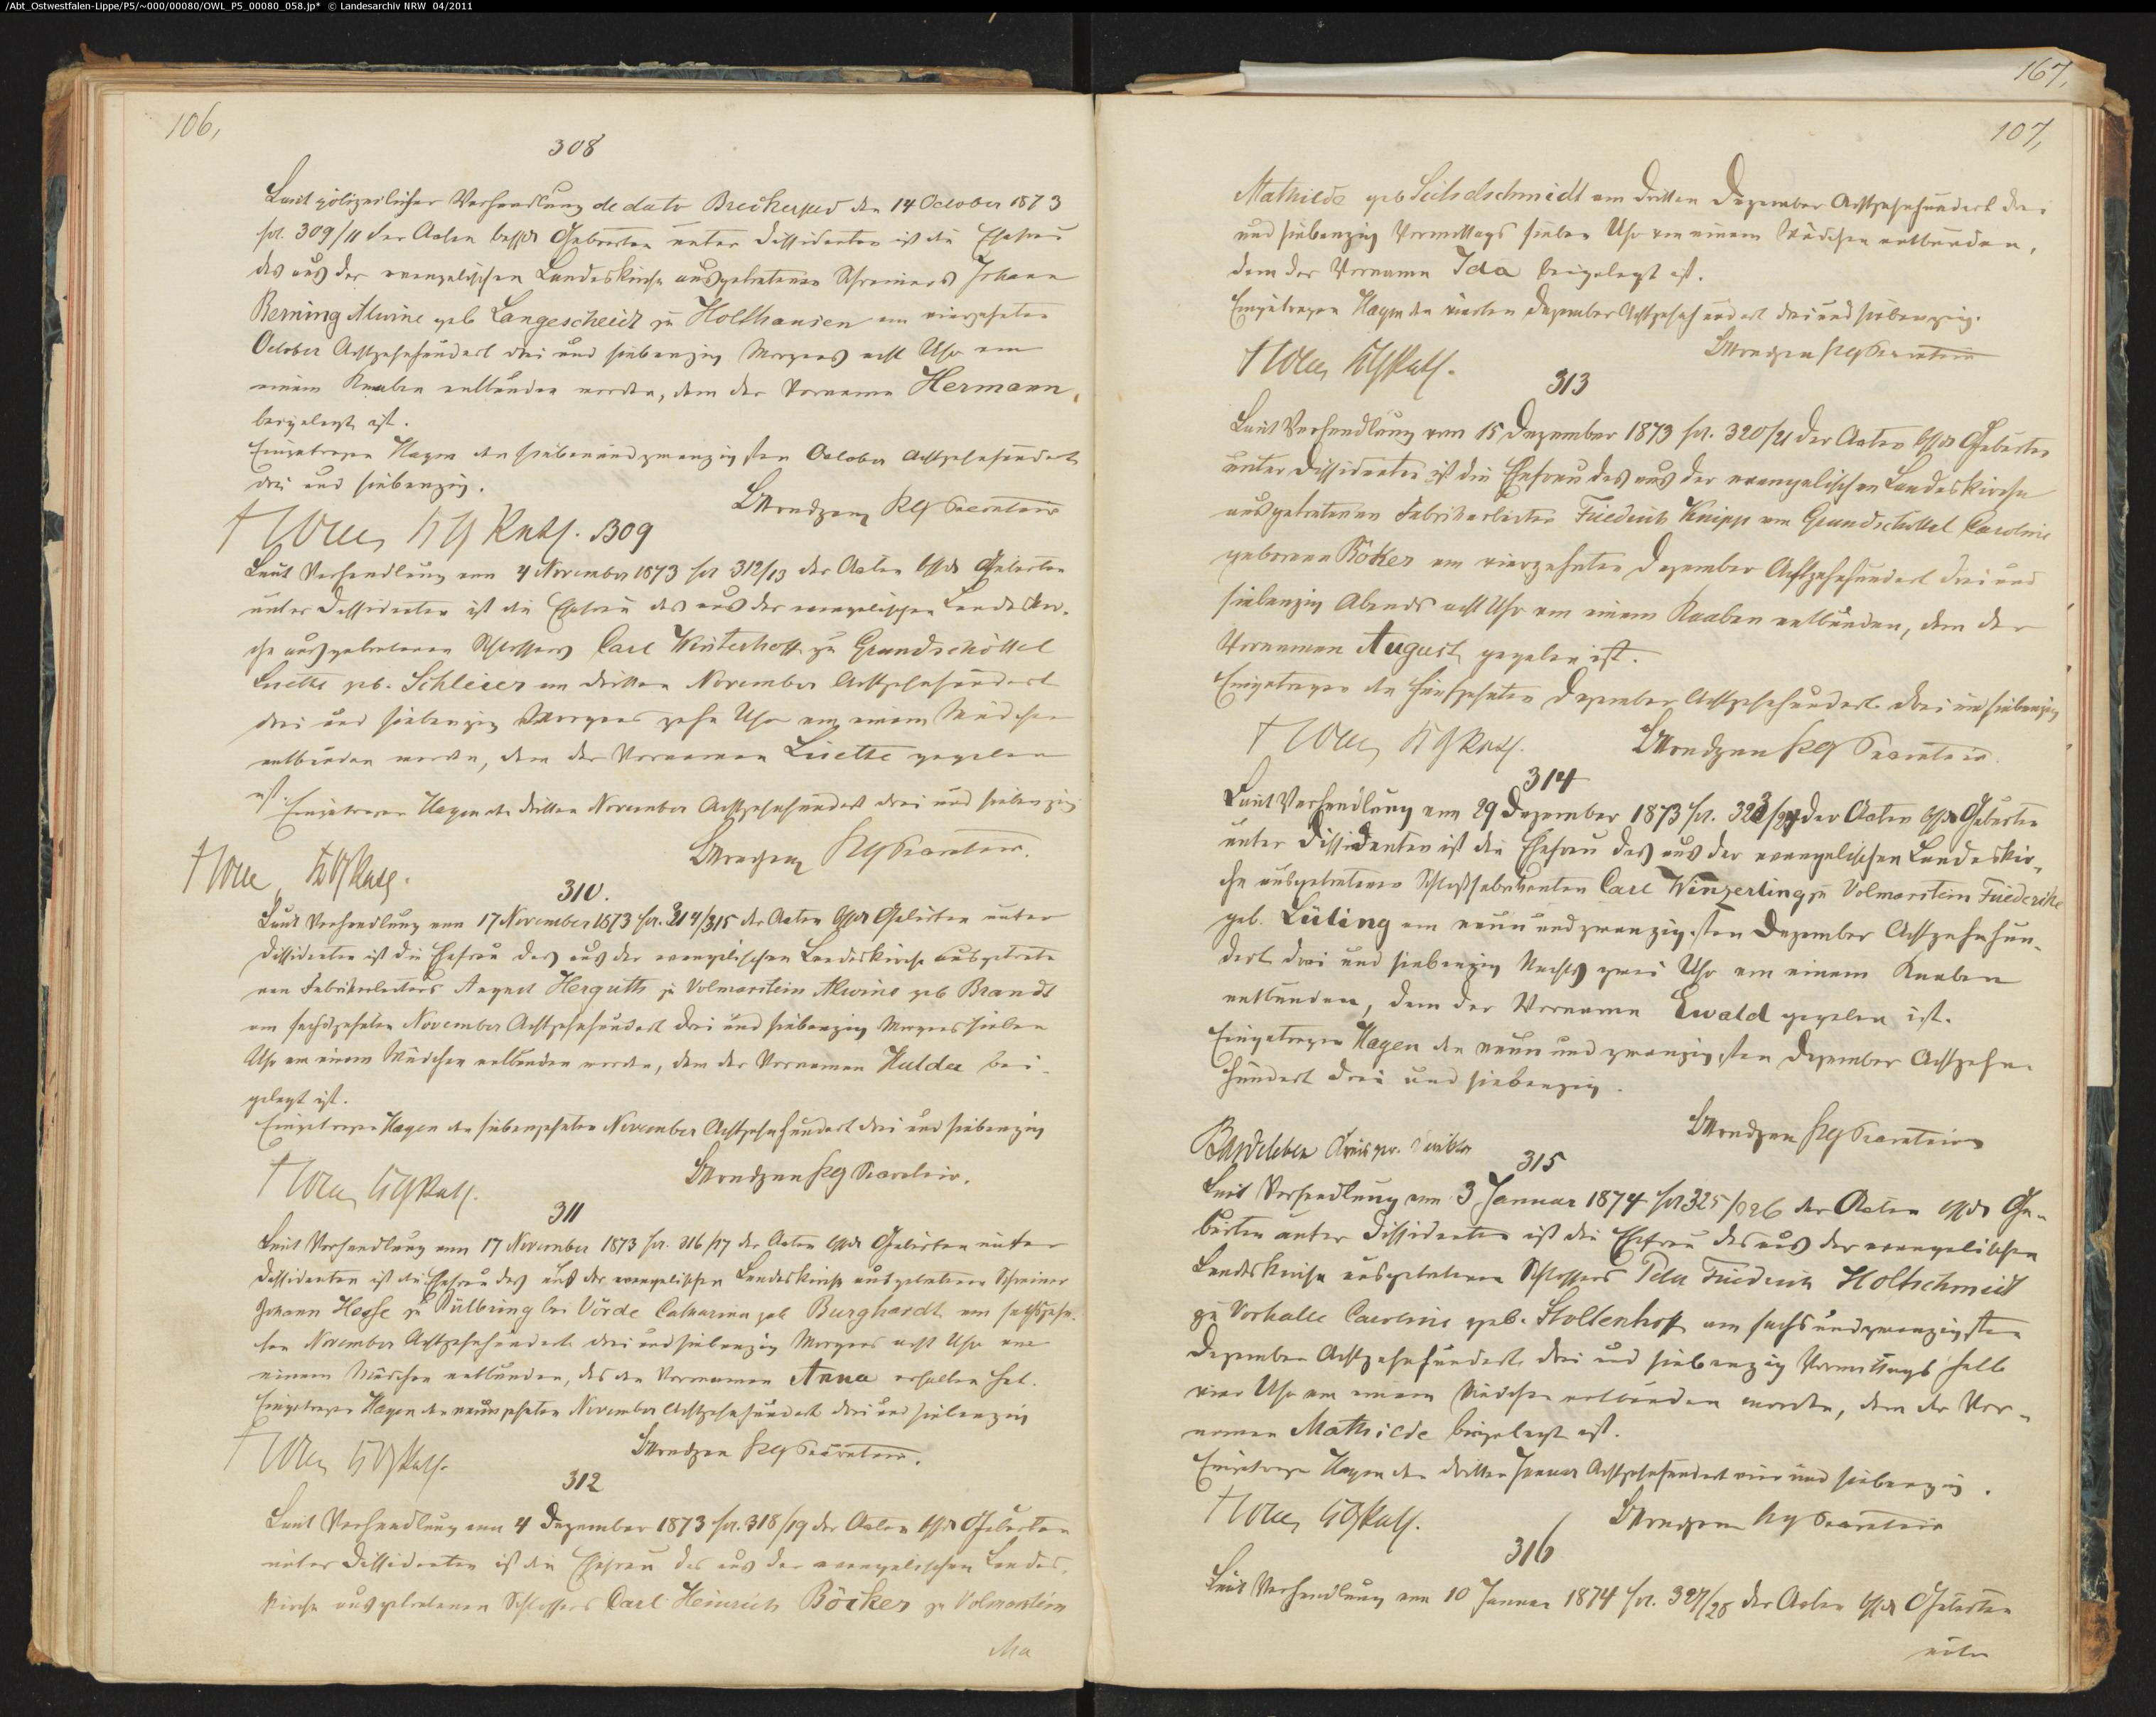 /Abt_Ostwestfalen-Lippe/P5/~000/00080/OWL_P5_00080_058.jp* © Landesarchiv NRW 04/2011
106,
308
Laut polizeilicher Verhandlung de dato Breckerfeld den 14 October 1873
fol. 309/11 der Acten betr Geburten unter Dissidenten ist die Ehefrau
des aus der evangelischen Landeskirche ausgetretenen Schreiners Johann
Berning Alwine geb Langescheidt zu Holthausen am vierzehnten
October Achtzehnhundert drei und siebenzig Morgens acht Uhr von
einem Knaben entbunden worden, dem der Vorname Hermann
beigelegt ist.
Eingetragen Hagen den siebenundzwanzigsten October Achtzehnhundert
drei und siebenzig.
KG Secretair
309
Laut Verhandlung vom 4 November 1873 fol 312/13 der Acten betr Geburten
unter Dissidenten ist die Ehefrau des aus der evangelischen Landeskir-
che ausgetretenen Schlossers Carl Winterhoff zu Grundschöttel
Lisette geb. Schleier am dritten November Achtzehnhundert
drei und siebenzig Morgens zehn Uhr von einem Mädchen
entbunden worden, dem der Vornamen Lisette gegeben
ist. Eingetragen Hagen den dritten November Achtzehnhundert drei und siebenzig
KG Secretair.
310.
Laut Verhandlung vom 17 November 1873 fol. 314/315 der Acten betr Geburten unter
Dissidenten ist die Ehefrau des aus der evangelischen Landeskirche ausgetrete-
nen Fabrikarbeiters August Herguth zu Volmarstein Alwine geb Brandt
am sechszehnten November Achtzehnhundert drei und siebenzig Morgens sieben
Uhr von einem Mädchen entbunden worden, dem der Vornamen Hulda bei-
gelegt ist.
Eingetragen Hagen den siebenzehnten November Achtzehnhundert drei und siebenzig
KG Secretair.
311
Laut Verhandlung vom 17 November 1873 fol. 316/17 der Acten betr Geburten unter
Dissidenten ist die Ehefrau des aus der evangelischen Landeskirche ausgetretenen Schreiner
Johann Hesse zu bei Vörde Catharina geb Burghardt am sechszehn-
ten November Achtzehnhundert drei und siebenzig Morgens acht Uhr von
einem Mädchen entbunden, das den Vornamen Anna erhalten hat.
Eingetragen Hagen den neunzehnten November Achtzehnhundert drei und siebenzig
KG Secretair.
312
Laut Verhandlung vom 4 Dezember 1873 fol. 318/19 der Acten betr Geburten
unter Dissidenten ist die Ehefrau des aus der evangelischen Landes-
kirche ausgetretenen Schlossers Carl Heinrich Böcker zu Volmarstein
Ma
167,
107,
Mathilde geb am dritten Dezember Achtzehnhundert drei
und siebenzig Vormittags sieben Uhr von einem Mädchen entbunden,
dem der Vorname Ida beigelegt ist.
Eingetragen Hagen den vierten Dezember Achtzehnhundert drei und siebenzig.
KG Secretair
313
Laut Verhandlung vom 15 Dezember 1873 fol. 320/21 der Acten betr Geburten
unter Dissidenten ist die Ehefrau des aus der evangelischen Landeskirche
ausgetretenen Fabrikarbeiter Friedrich Knipp am Grundschöttel Caroline
geborene Böker am vierzehnten Dezember Achtzehnhundert drei und
siebenzig Abends acht Uhr von einem Knaben entbunden, dem der
Vornamen August gegeben ist.
Eingetragen den fünfzehnten Dezember Achtzehnhundert drei und siebenzig
KG Secretair.
314
Laut Verhandlung vom 29 Dezember 1873 fol. 323/24 der Acten betr Geburten
unter Dissidenten ist die Ehefrau des aus der evangelischen Landeskir-
che ausgetretenen Schloßfabrikanten Carl Winzerling zu Volmarstein Friederike
geb. Lüling am neun und zwanzigsten Dezember Achtzehnhun-
dert drei und siebenzig Nachts zwei Uhr von einem Knaben
entbunden, dem der Vorname Ewald gegeben ist.
Eingetragen Hagen den neun und zwanzigsten Dezember Achtzehn-
hundert drei und siebenzig.
KG Secretair
315
Laut Verhandlung vom 3 Januar 1874 fol 325/326 der Acten betr Ge-
burten unter Dissidenten ist die Ehefrau des aus der evangelischen
Landeskirche ausgetretenen Schlossers Peter Friedrich Holtschmidt
zu Vorhalle Caroline geb. Stoltenhoff am sechs und zwanzigsten
Dezember Achtzehnhundert drei und siebenzig Vormittags halb
vier Uhr von einem Mädchen entbunden worden, dem der Vor-
namen Mathilde beigelegt ist.
Eingetragen Hagen den dritten Januar Achtzehnhundert vier und siebenzig.
KG Secretair
316
Laut Verhandlung vom 10 Januar 1874 fol. 327/28 der Acten betr Geburten
unter